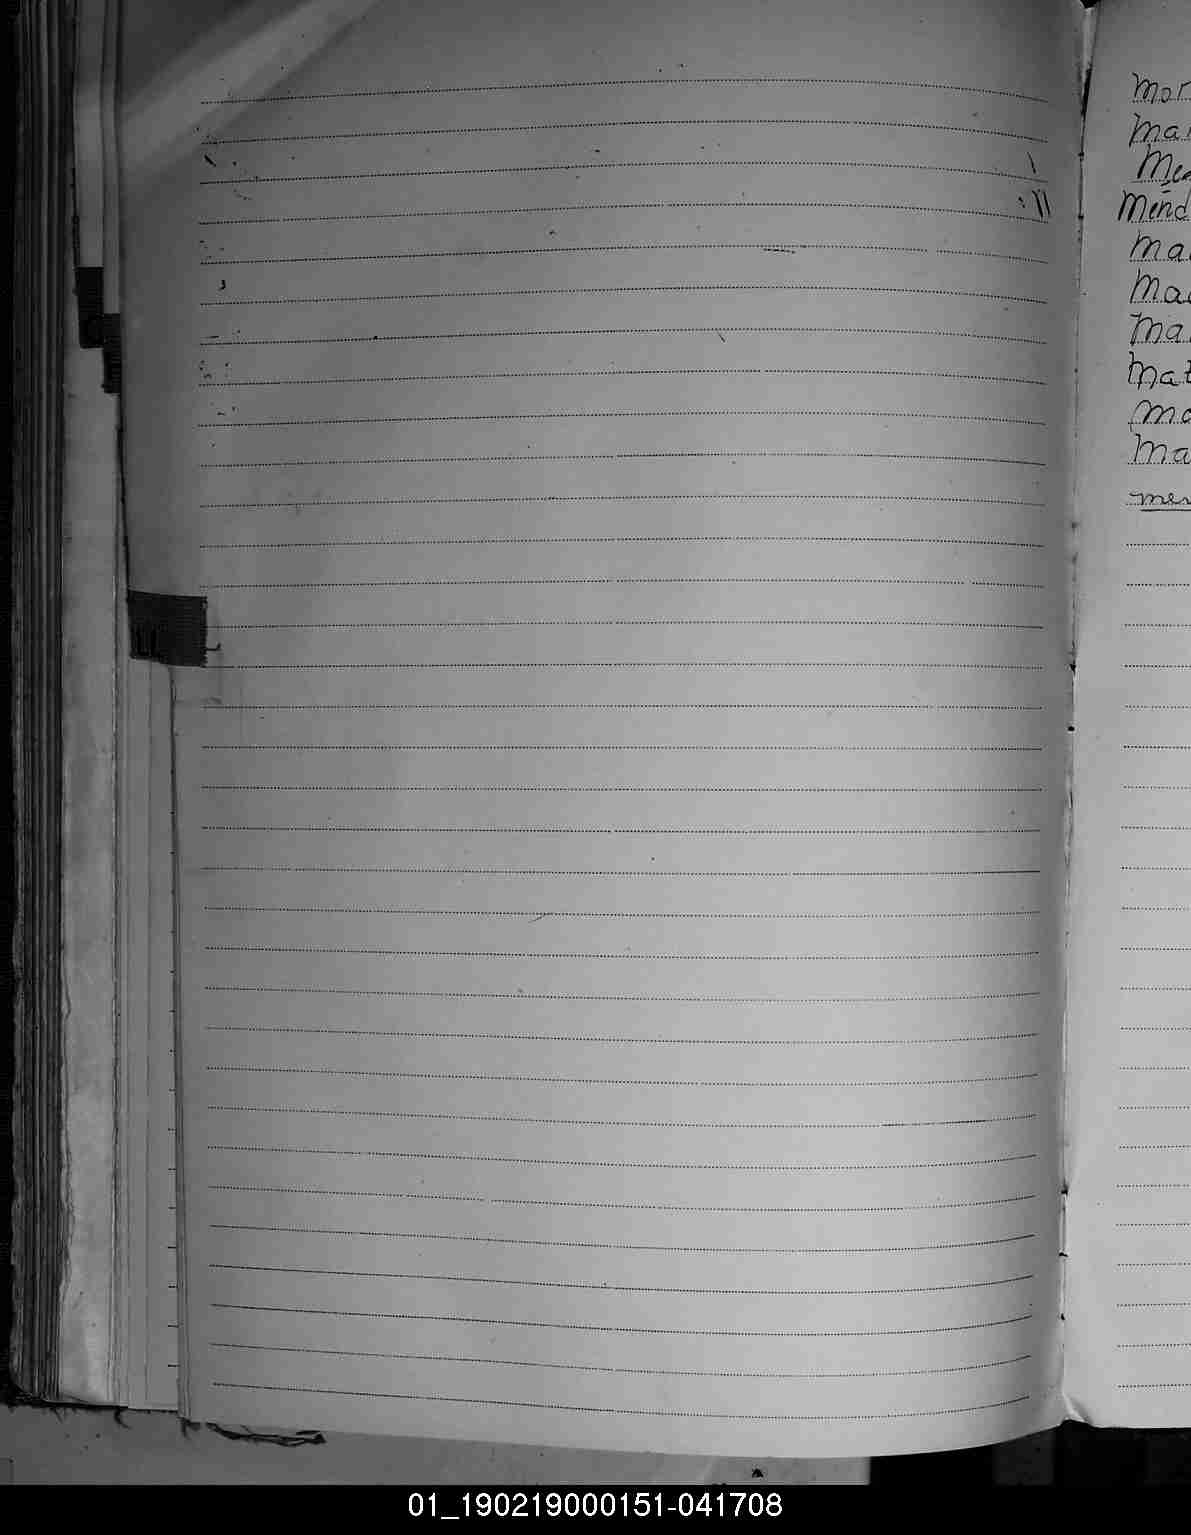 LL
Mor
Ma
Me
Mend
Ma
Ma
Ma
Mat
Mo
Ma
mer
01_190219000151-041708